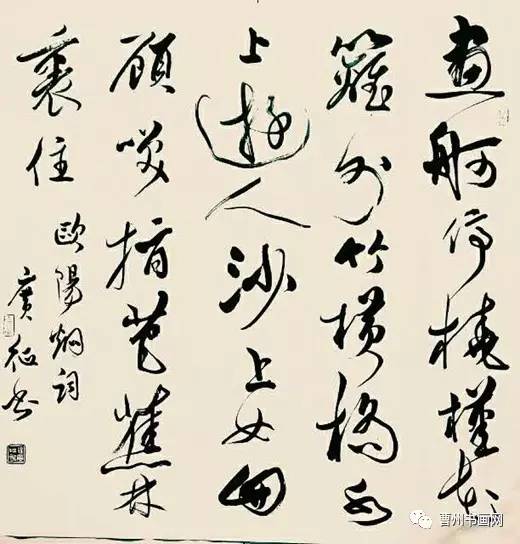 畫舸停橈槿花
籬外竹橫橋水
上遊人沙上女回
顧咲指芭蕉林
裏住
歐陽炯詞
廣征书
曹州书画网